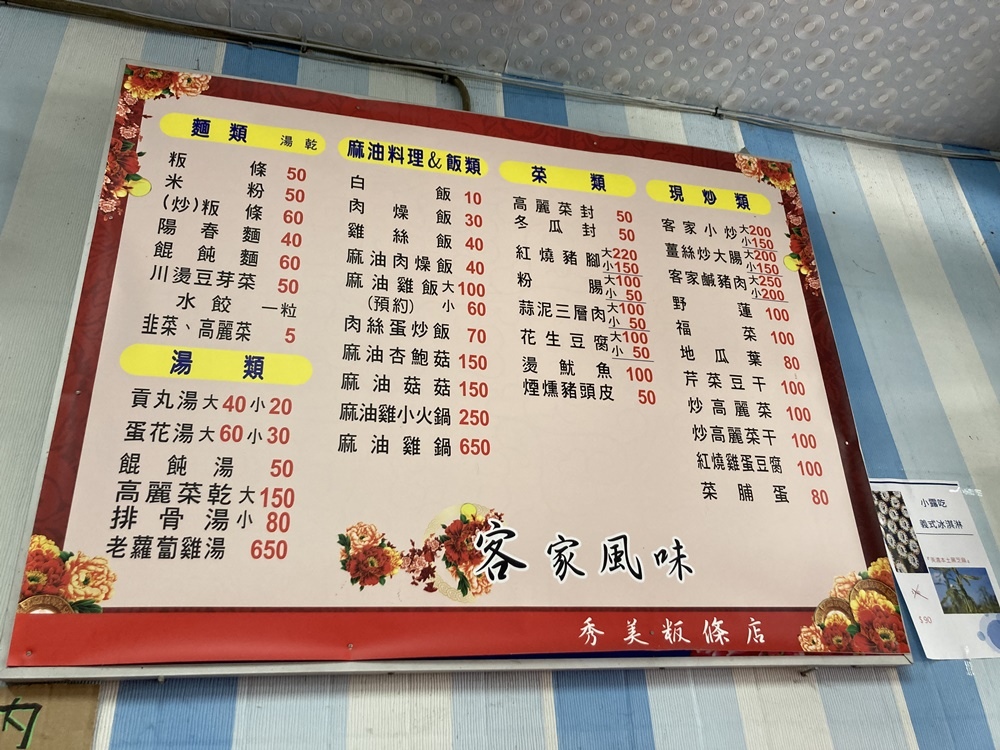 麵類 湯 乾
粄條 50
米粉 50
(炒)粄條 60
陽春麵 40
餛飩麵 60
川燙豆芽菜 50
水餃 一粒
韭菜、高麗菜 5
湯類
貢丸湯 大40 小20
蛋花湯 大60 小30
餛飩湯 50
高麗菜乾 大150
排骨湯 小80
老蘿蔔雞湯 650
麻油料理&飯類
白飯 10
肉燥飯 30
雞絲飯 40
麻油肉燥飯 40
麻油雞飯 大100
(預約) 小60
肉絲蛋炒飯 70
麻油杏鮑菇 150
麻油菇菇 150
麻油雞小火鍋 250
麻油雞鍋 650
菜類
高麗菜封 50
冬瓜封 50
紅燒豬腳 大220
小150
粉腸 大100
小50
蒜泥三層肉 大100
小50
花生豆腐 大100
小50
燙魷魚 100
煙燻豬頭皮 50
現炒類
客家小炒 大200
小150
薑絲炒大腸 大200
小150
客家鹹豬肉 大250
小200
野蓮 100
福菜 100
地瓜葉 80
芹菜豆干 100
炒高麗菜 100
炒高麗菜干 100
紅燒雞蛋豆腐 100
菜脯蛋 80
客家風味
秀美粄條店
小露吃
義式冰淇淋
$90
內